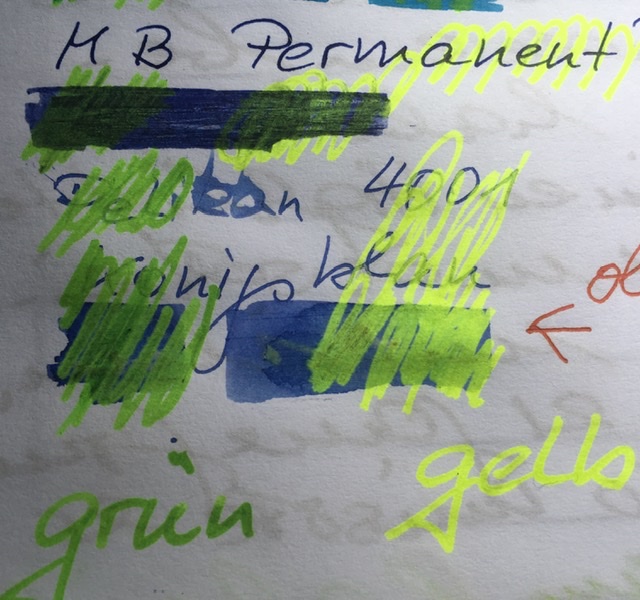 MB Permanent
Pelikan 4001
Königsblau
grün gelb